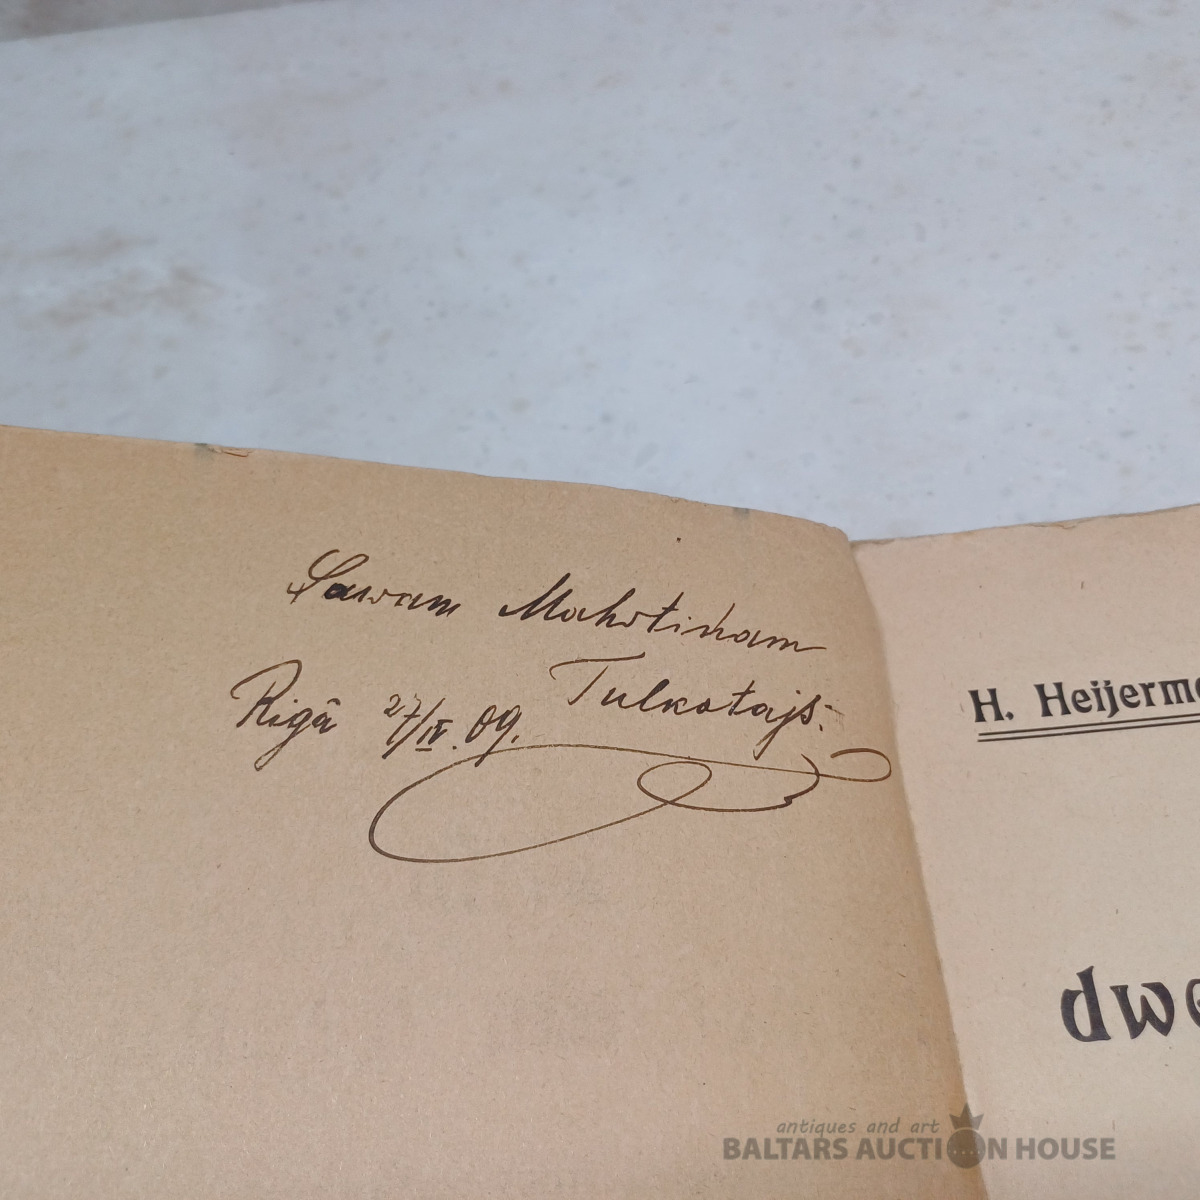 Sawam Mahrtinam
Tulkotajs.
Rigā 27/IV. 09.
H. Heijerm
dw
antiques and art
BALTARS AUCTION HOUSE